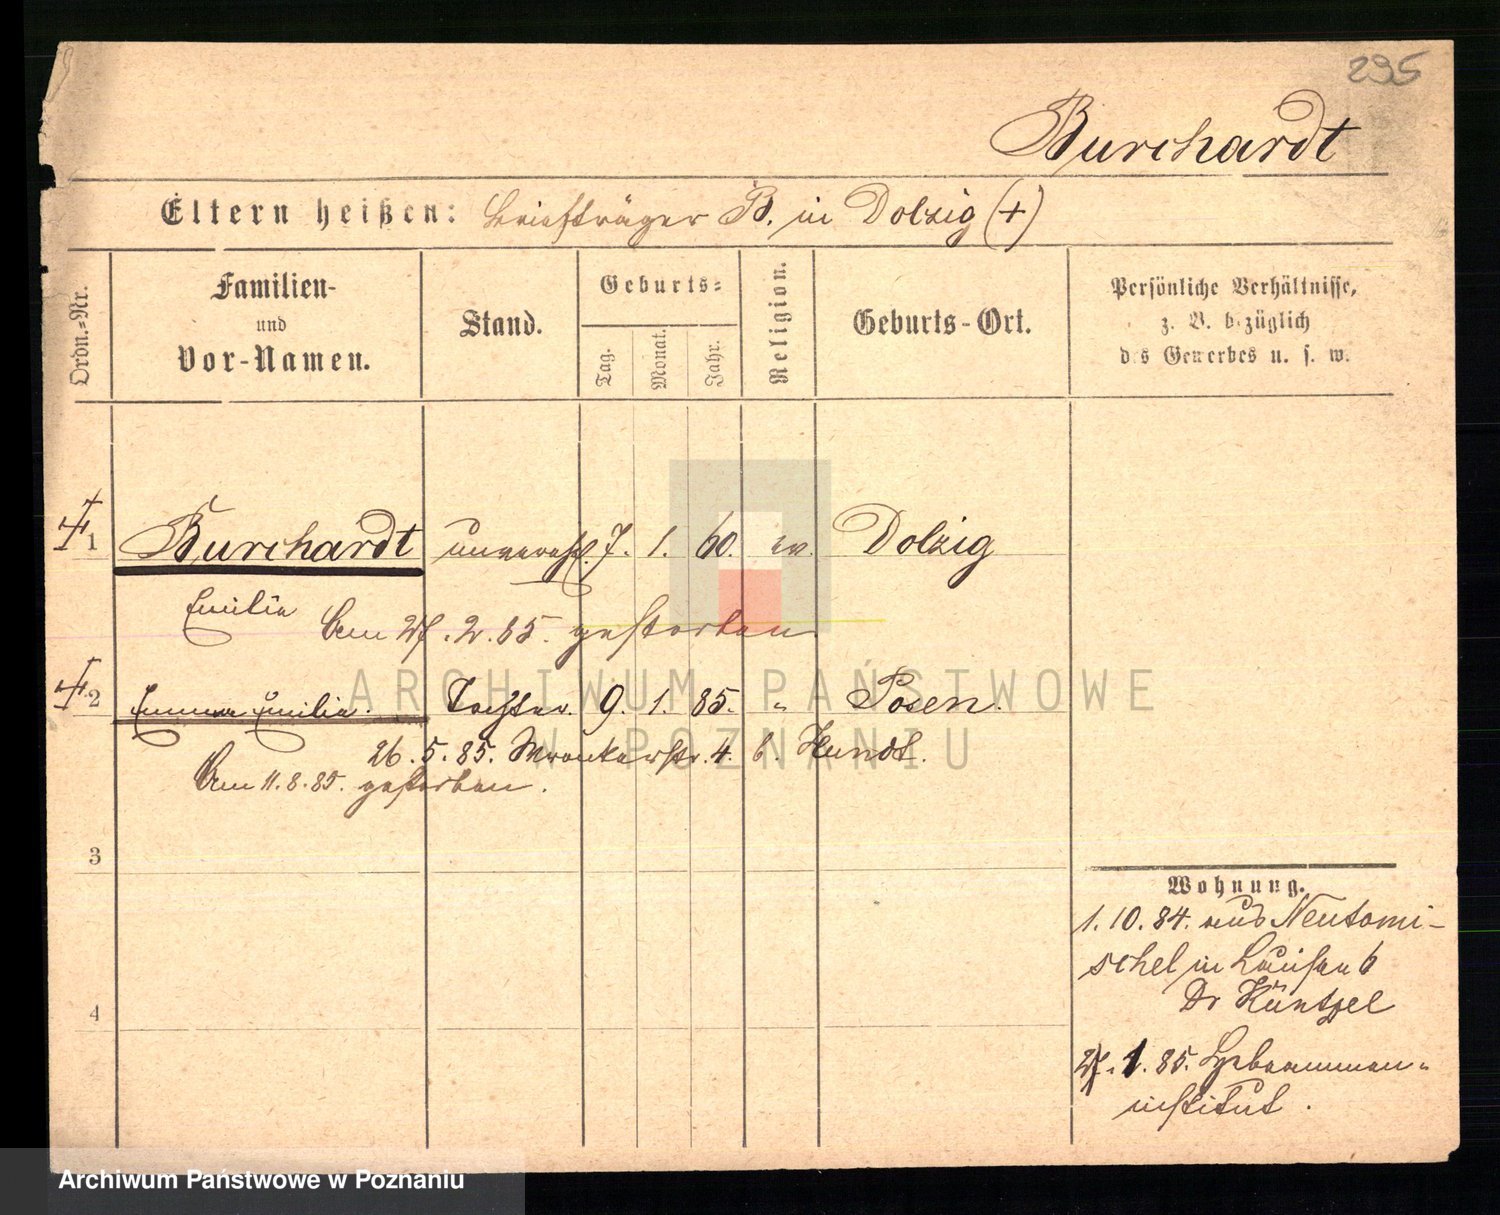 295
Burchardt
Eltern heißen: Briefträger B. in Dolzig (+)
Ordn.-Nr.
Familien- und Vor-Namen.
Stand.
Geburts-
Tag.
Monat.
Jahr.
Religion.
Geburts-Ort.
Persönliche Verhältnisse,
z. B. bezüglich
des Gewerbes u. s. w.
1 Burchardt unverehl. 7. 1. 60. ev. Dolzig
Emilie
Am 27. 2. 85. gestorben
2 Emma Emilie. Tochter. 9. 1. 85. " Posen.
26. 5. 85. Wronkerstr. 4. b. Hundt.
Am 11. 8. 85. gestorben.
3
4
Wohnung.
1. 10. 84. aus Neutomi-
schel in Louisen 6
DrKüntzel
27. 1. 85. Hebammen-
institut.
ARCHIWUM PAŃSTWOWE
W POZNANIU
Archiwum Państwowe w Poznaniu